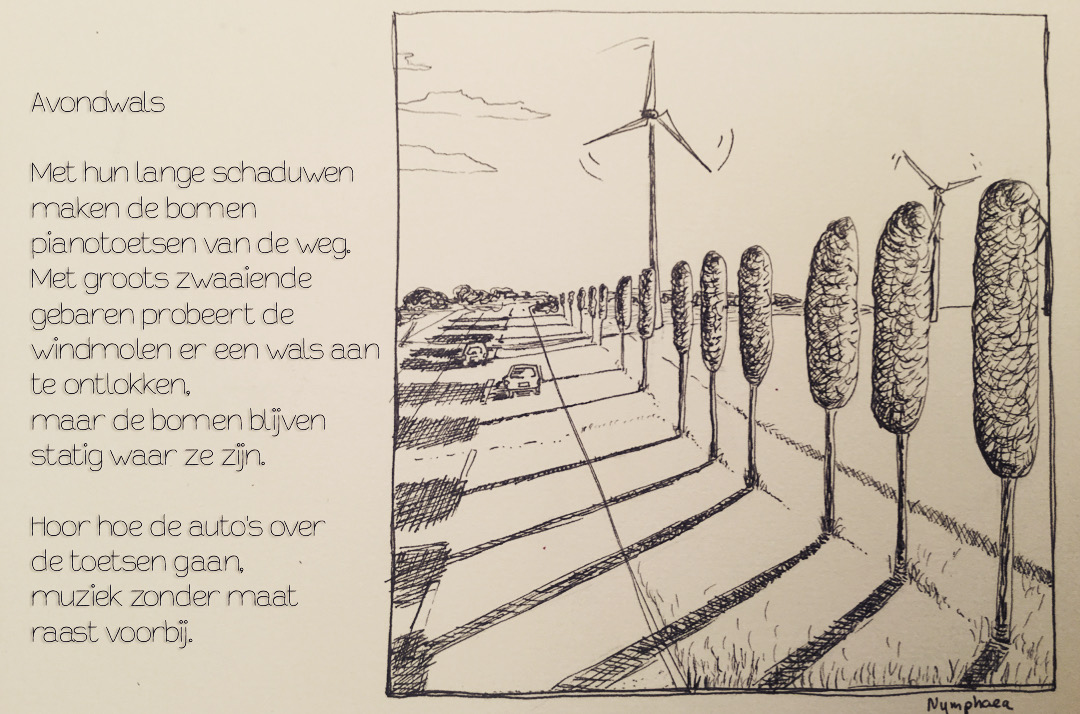 Avondwals
Met hun lange schaduwen
maken de bomen
pianotoetsen van de weg.
Met groots zwaaiende
gebaren probeert de
windmolen er een wals aan
te ontlokken,
maar de bomen blijven
statig waar ze zijn.
Hoor hoe de auto's over
de toetsen gaan,
muziek zonder maat
raast voorbij.
Nymphaea